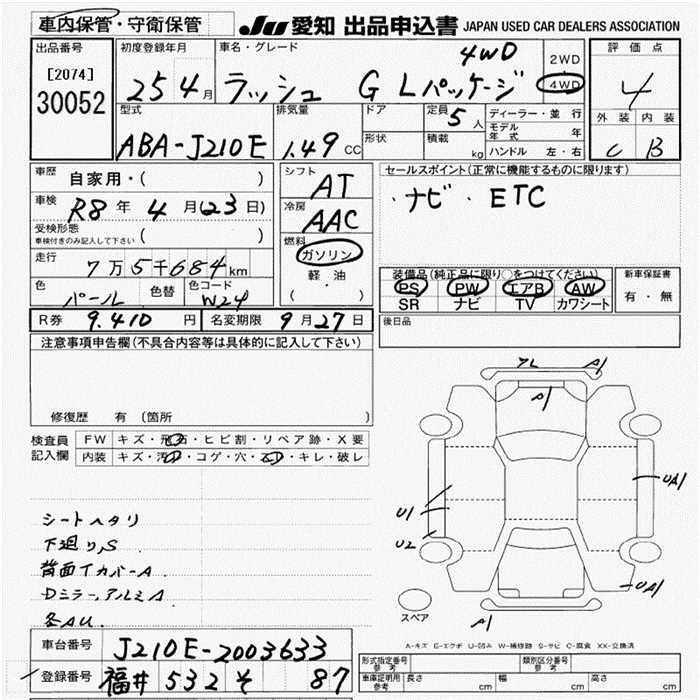 車内保管・守衛保管
JU 愛知 出品申込書 JAPAN USED CAR DEALERS ASSOCIATION
出品番号
[2074]
30052
初度登録年月
25 4月
車名・グレード
ラッシュ G Lパッケージ 4WD
2WD
4WD
評価点
4
外装 内装
C B
型式
ABA-J210E
排気量
1.49 CC
ドア
形状
定員 5人
積載 kg
ディーラー・並行
モデル年式 年
ハンドル 左・右
車歴 自家用・( )
車検 R8年 4月(23日)
受検形態
車検付きのみ記入して下さい ( )
走行 7万5千684km
色 パール 色替 色コード W24
R券 9.410円 名変期限 9月27日
シフト AT
冷房 AAC
燃料
ガソリン
軽・油
( ・ )
セールスポイント(正常に機能するものに限ります)
・ナビ・ETC
装備品(純正品に限り○をつけてください)
PS PW エアB AW
SR ナビ TV カワシート
新車保証書
有・無
後日品
注意事項申告欄(不具合内容等は具体的に記入して下さい)
修復歴 有(箇所 )
検査員記入欄
FW キズ・飛石・ヒビ割・リペア跡・X要
内装 キズ・汚・コゲ・穴・・キレ・破レ
シートヘタリ
下廻り,S
背面タイカバーA
Dミラー,アルミA
各AU.
車台番号 J210E-2003633
登録番号 福井 532 そ 87
A1
A1
U1
U2
UA1
UA1
A1
スペア
A-キズ E-エクボ U-凹み W-補修跡 S-サビ C-腐食 XX-交換済
形式指定番号 参考
類別区分番号 参考
車庫証明用 参考
長さ cm 幅 cm 高さ cm